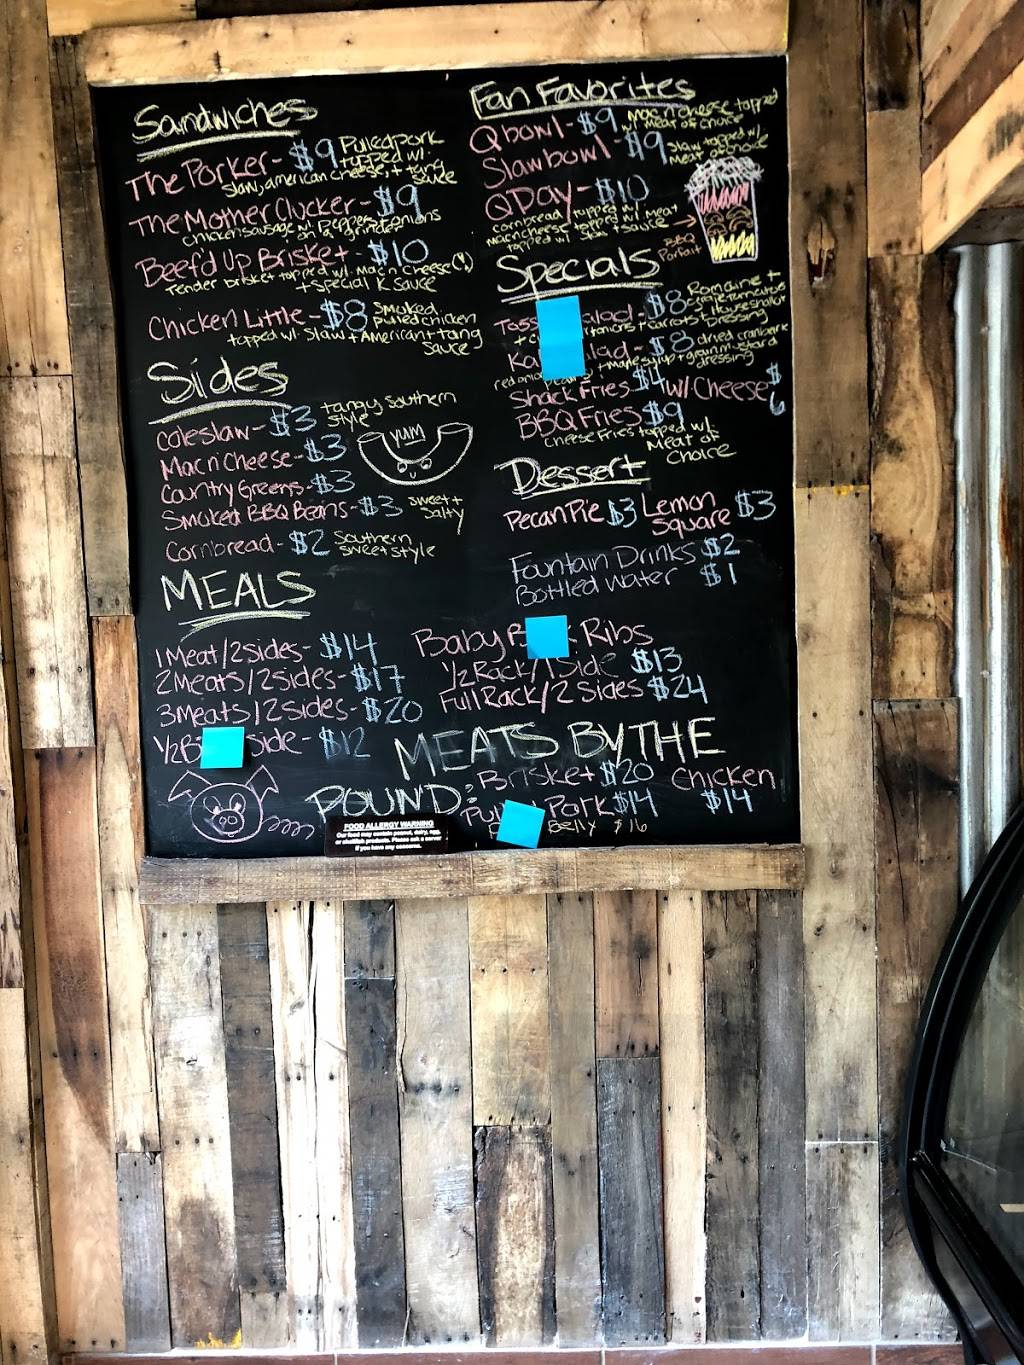 Sandwiches
The Porker - $9 Pulled pork
topped w/
slaw, american cheese, + tang
sauce
The Mother Clucker - $9
chicken sausage w/ peppers + onions
on a grinder
Beef'd Up Brisket - $10
Tender brisket topped w/ Mac n Cheese (!)
+ special K sauce
Chicken Little - $8 Smoked
pulled chicken
topped w/ slaw + American + tang
sauce
Sides
coleslaw - $3 tangy southern
style
Mac n' Cheese - $3
Country Greens - $3
Smoked BBQ Beans - $3 sweet +
salty
Cornbread - $2 Southern
sweet style
yum
MEALS
1 Meat/2 sides - $14
2 Meats/2 sides - $17
3 Meats/2 sides - $20
1/2 B side - $12
Fan Favorites
Q bowl - $9 Mac n' cheese topped
w/ meat of choice
Slaw bowl - $9 slaw topped w/
meat of choice
Q Day - $10
cornbread topped w/
mac n cheese topped w/ meat
topped w/ slaw + sauce
BBQ
Parfait
Specials
Toss alad - $8 Romaine +
grape tomatoes
+ c + carrots + House
Dressing
Ka alad - $8 dried cranberr
red onio + maple syrup + grain mustard
dressing
Shack Fries $4 w/ Cheese $6
BBQ Fries $9
cheese fries topped w/
Meat of
Choice
Dessert
Pecan Pie $3 Lemon
Square $3
Fountain Drinks $2
Bottled Water $1
Baby B k Ribs
1/2 Rack/1 Side $13
Full Rack/2 Sides $24
MEATS BY THE
POUND:
Brisket $20 Chicken
$14
Pull Pork $14
Belly $16
FOOD ALLERGY WARNING
Our food may contain peanut, dairy, egg,
or shellfish products. Please ask a server
if you have any concerns.